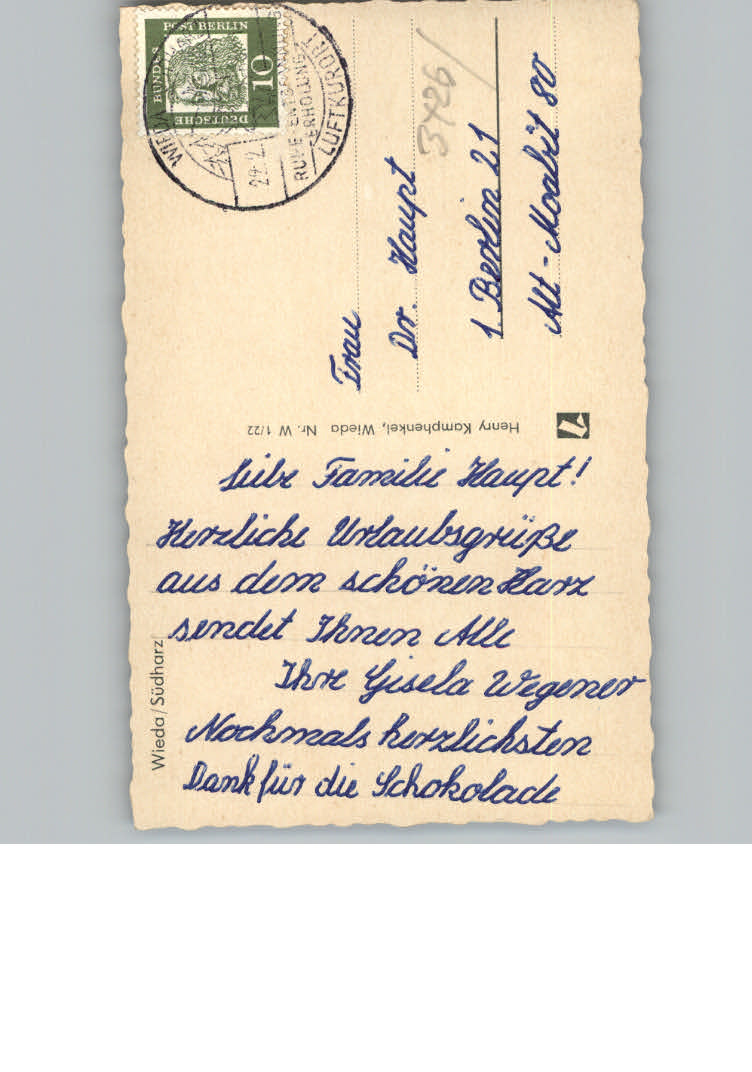 Liebe Familie Haupt!
Herzliche Urlaubsgrüße
aus dem schönen Harz
sendet Ihnen Alle
Ihre Gisela Wegener
Nochmals herzlichsten
Dank für die Schokolade
Wieda/Südharz
Henry Kamphenkel, Wieda Nr. W 1/22
Frau
Dr. Haupt
1. Berlin 21
Alt-Moabit 80
3426/
DEUTSCHE BUNDESPOST BERLIN
10
WIEDA
29.2.
RUHE ENTSPANNUNG
ERHOLUNG
LUFTKURORT